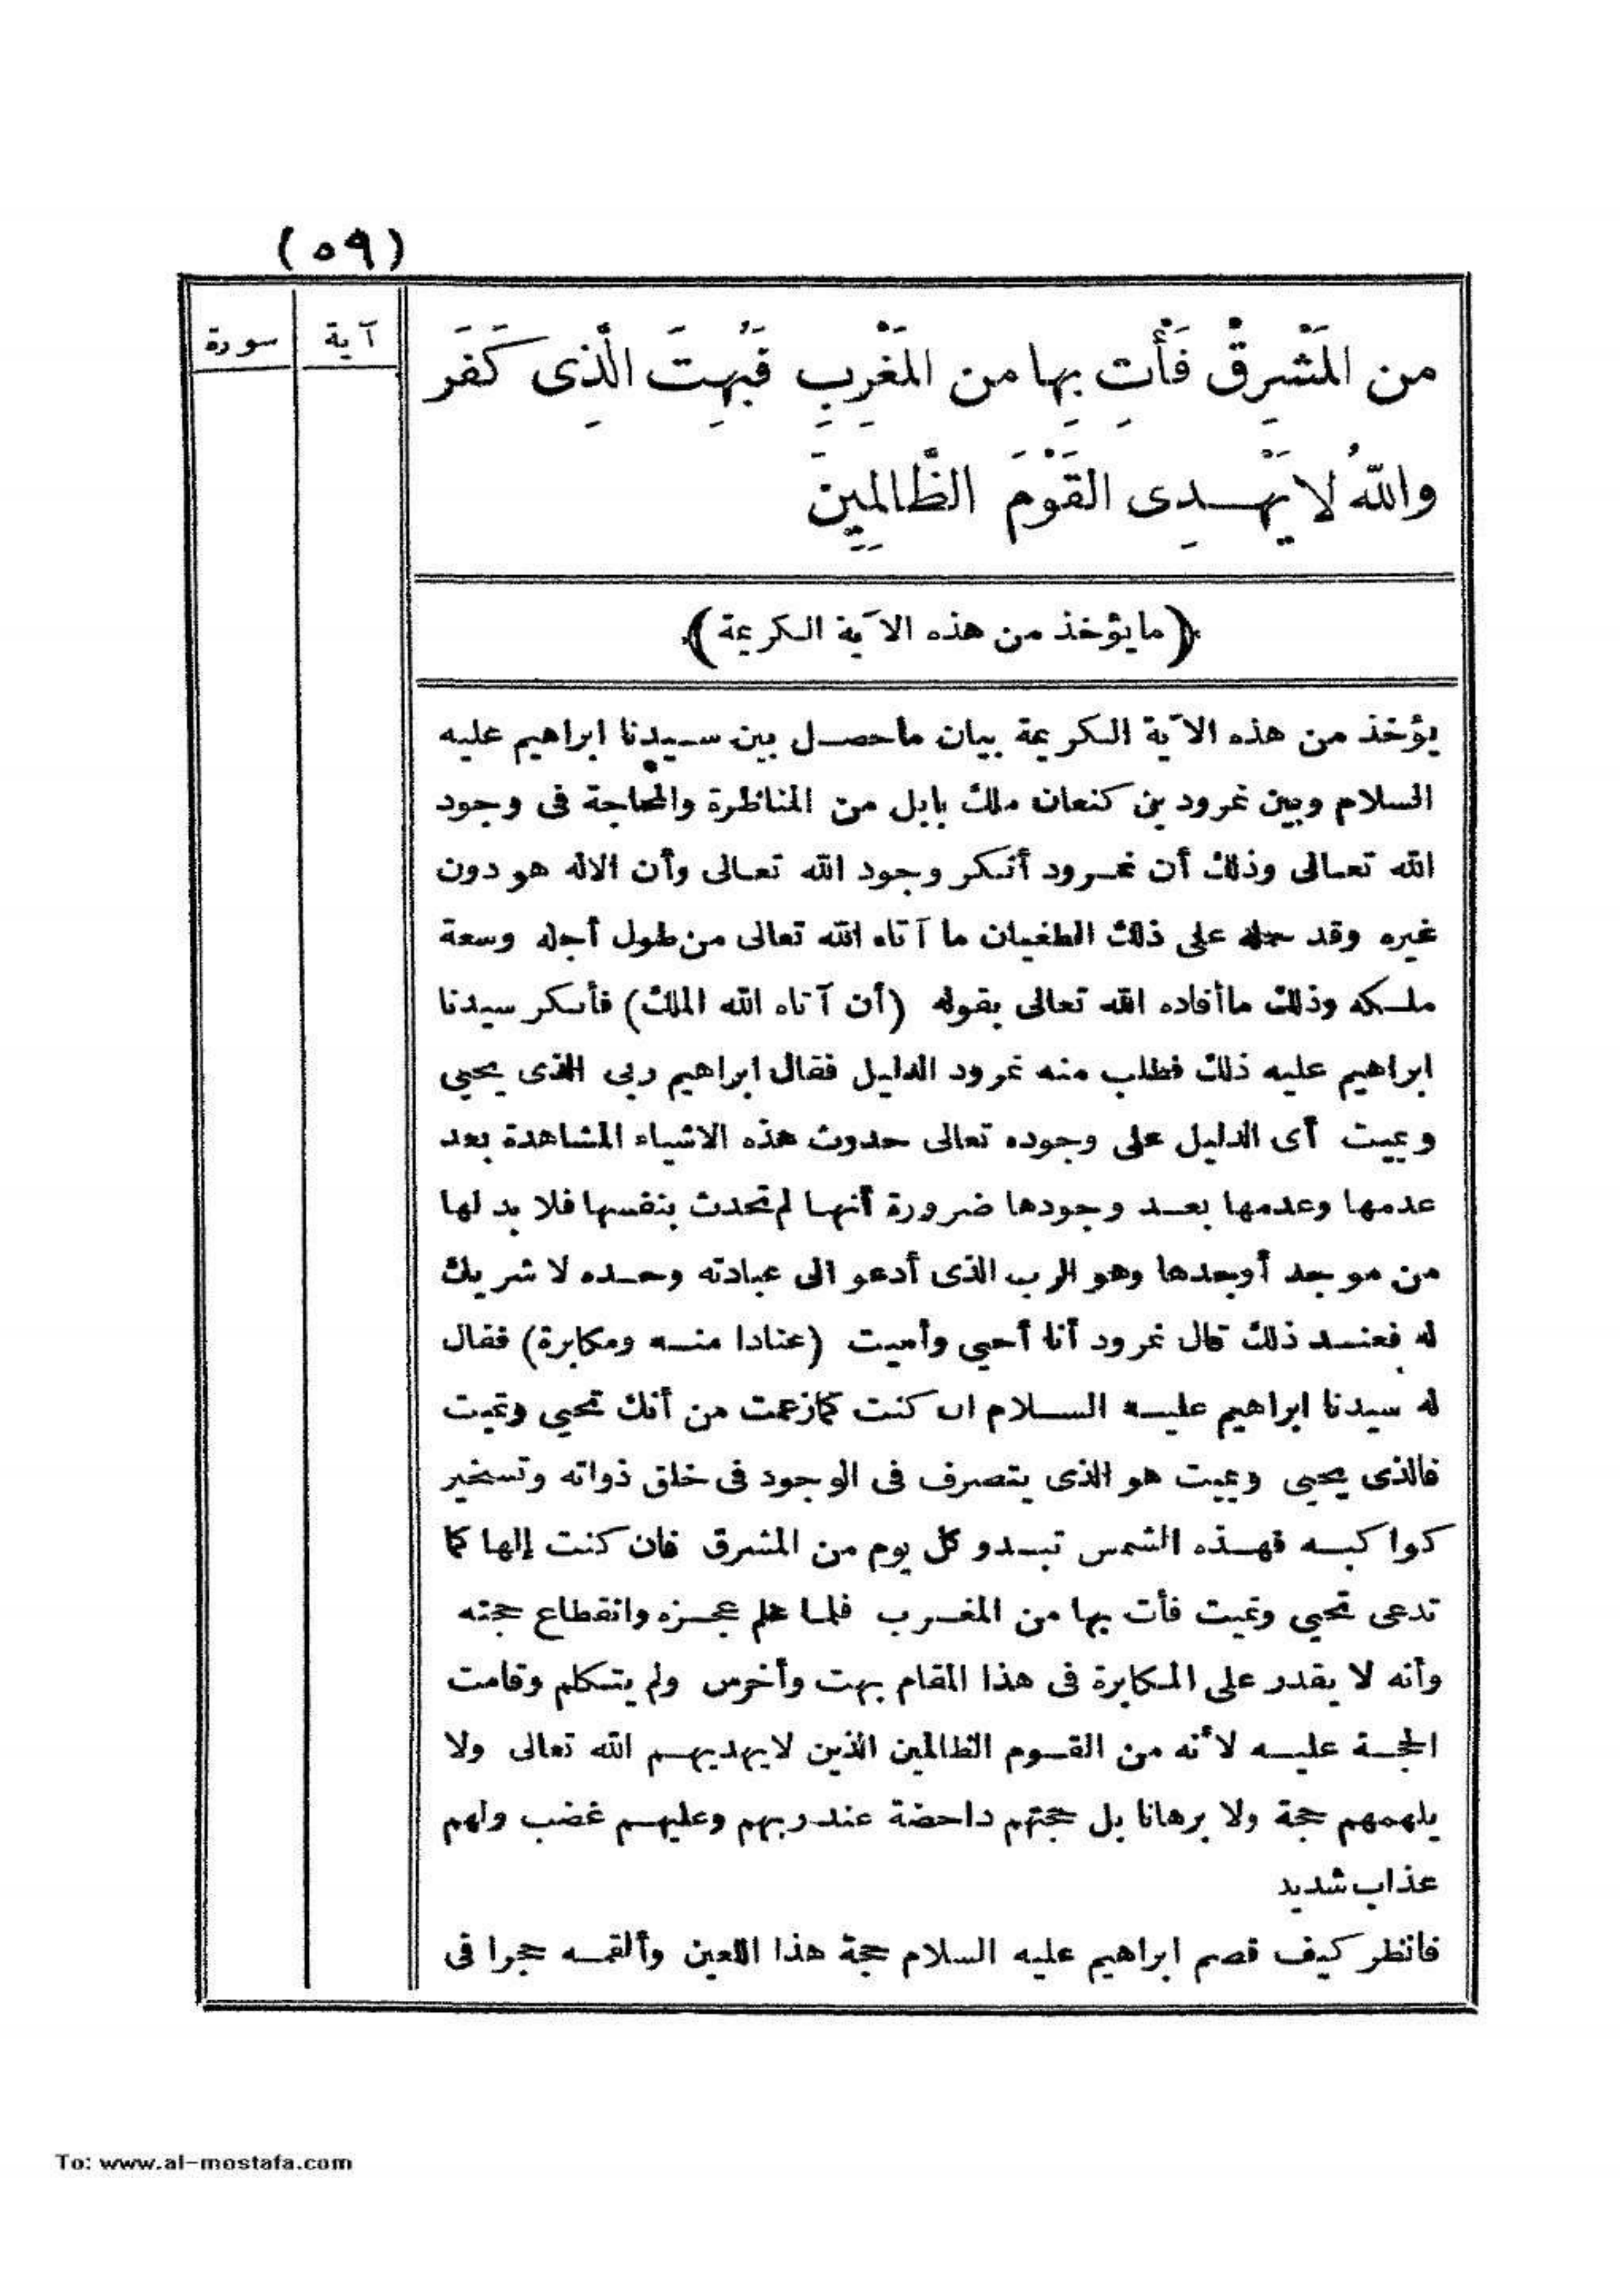 (٥٩)
آية
سورة
من المَشْرِقْ فَأْتِ بِها من المَغْرِبِ فَبُهِتَ الَّذِى كَفَر
واللهُ لا يَهْدِى القَوْمَ الظَّالِمِينَ
(مايؤخذ من هذه الآية الكريمة)
يؤخذ من هذه الآية الكريمة بيان ماحصل بين سيدنا ابراهيم عليه
السلام وبين نمرود بن كنعان ملك بابل من المناظرة والمحاجة فى وجود
الله تعالى وذلك أن نمرود أنكر وجود الله تعالى وأن الاله هو دون
غيره وقد حمله على ذلك الطغيان ما آتاه الله تعالى من طول أجله وسعة
ملكه وذلك ماأفاده الله تعالى بقوله (أن آتاه الله الملك) فأنكر سيدنا
ابراهيم عليه ذلك فطلب منه نمرود الدليل فقال ابراهيم ربى الذى يحيى
ويميت أى الدليل على وجوده تعالى حدوث هذه الاشياء المشاهدة بعد
عدمها وعدمها بعد وجودها ضرورة أنها لم تحدث بنفسها فلا بد لها
من موجد أوجدها وهو الرب الذى أدعو الى عبادته وحده لا شريك
له فعند ذلك قال نمرود أنا أحيى وأميت (عنادا منه ومكابرة) فقال
له سيدنا ابراهيم عليه السلام ان كنت كمازعمت من أنك تحيى وتميت
فالذى يحيى ويميت هو الذى يتصرف فى الوجود فى خلق ذواته وتسخير
كواكبه فهذه الشمس تبدو كل يوم من المشرق فان كنت إلها كما
تدعى تحيى وتميت فأت بها من المغرب فلما علم عجزه وانقطاع حجته
وأنه لا يقدر على المكابرة فى هذا المقام بهت وأخرس ولم يتكلم وقامت
الحجة عليه لأنه من القوم الظالمين الذين لايهديهم الله تعالى ولا
يلهمهم حجة ولا برهانا بل حجتهم داحضة عند ربهم وعليهم غضب ولهم
عذاب شديد
فانظر كيف قصم ابراهيم عليه السلام حجة هذا اللعين وألقمه حجرا فى
To: www.al-mostafa.com